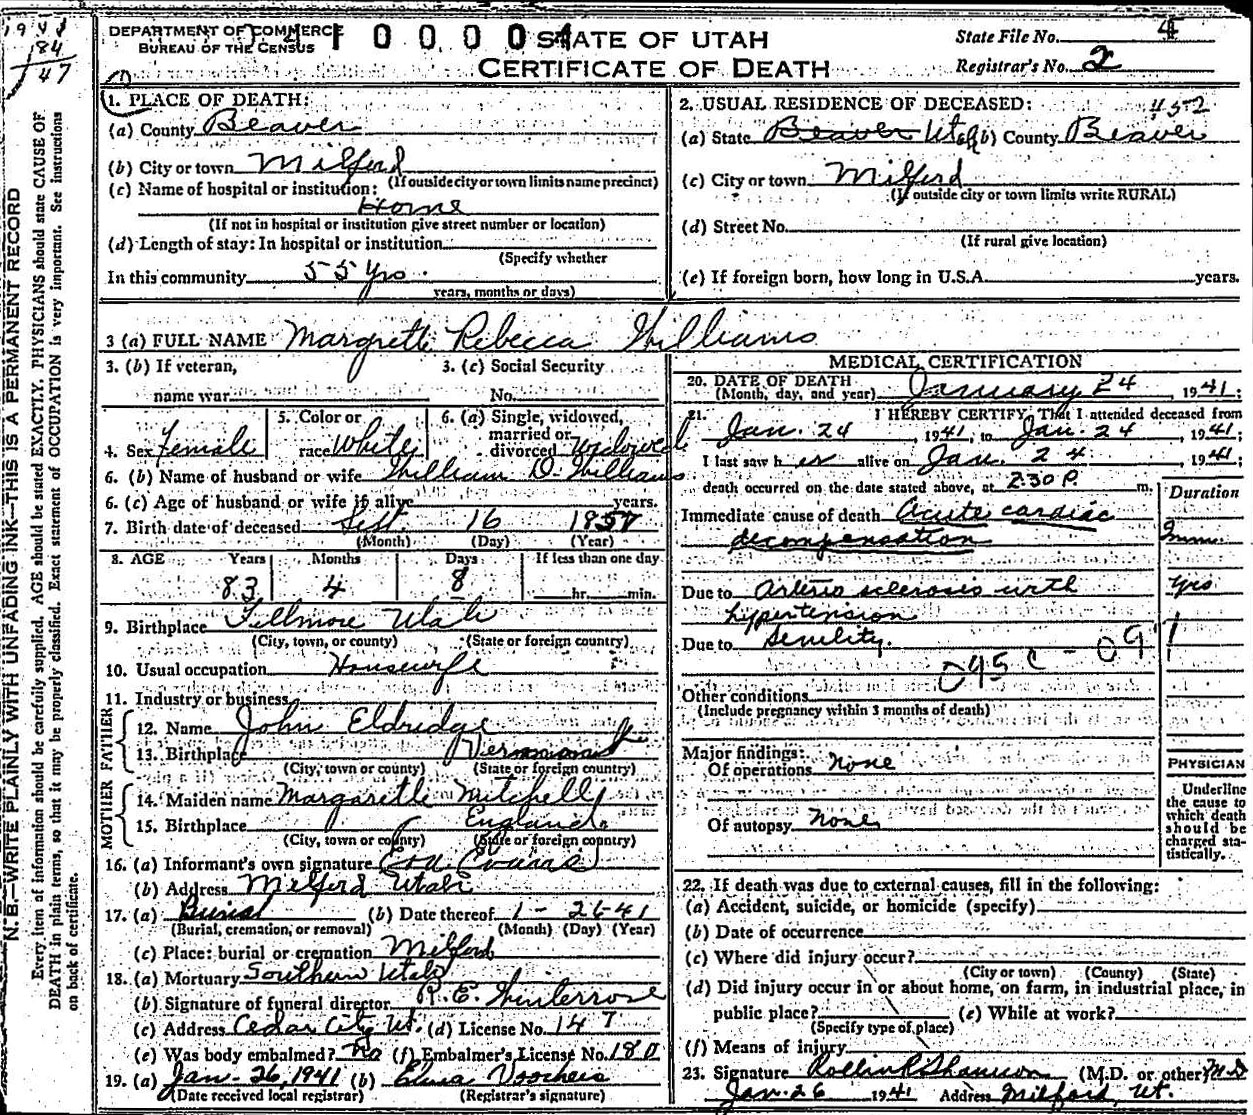 1941
84
1/47
DEPARTMENT OF COMMERCE
BUREAU OF THE CENSUS
1 0 0 0 0 4
STATE OF UTAH
CERTIFICATE OF DEATH
State File No. 4
Registrar's No. 2
1. PLACE OF DEATH:
(a) County Beaver
(b) City or town Milford
(If outside city or town limits name precinct)
(c) Name of hospital or institution:
Home
(If not in hospital or institution give street number or location)
(d) Length of stay: In hospital or institution
(Specify whether
In this community 55 yrs.
years, months or days)
2. USUAL RESIDENCE OF DECEASED: 452
(a) State Beaver Utah (b) County Beaver
(c) City or town Milford
(If outside city or town limits write RURAL)
(d) Street No.
(If rural give location)
(e) If foreign born, how long in U.S.A. years.
3 (a) FULL NAME Margrett Rebecca Williams
3. (b) If veteran,
name war
3. (c) Social Security
No.
4. Sex Female
5. Color or
race White
6. (a) Single, widowed,
married or
divorced Widowed
6. (b) Name of husband or wife William O. Williams
6. (c) Age of husband or wife if alive years.
7. Birth date of deceased Sept 16 1857
(Month) (Day) (Year)
8. AGE Years Months Days If less than one day
83 4 8 hr. min.
9. Birthplace Fillmore Utah
(City, town, or county) (State or foreign country)
10. Usual occupation Housewife
11. Industry or business
FATHER
12. Name John Eldridge
13. Birthplace Vermont
(City, town or county) (State or foreign country)
MOTHER
14. Maiden name Margarette Mitchell
15. Birthplace England
(City, town or county) (State or foreign country)
16. (a) Informant's own signature Eva Evans
(b) Address Milford Utah
17. (a) Burial (b) Date thereof 1-26-41
(Burial, cremation, or removal) (Month) (Day) (Year)
(c) Place: burial or cremation Milford
18. (a) Mortuary Southern Utah
(b) Signature of funeral director R. E. Winterrose
(c) Address Cedar City Ut. (d) License No. 147
(e) Was body embalmed? No (f) Embalmer's License No. 180
19. (a) Jan-26, 1941 (b) Elma Voorhees
(Date received local registrar) (Registrar's signature)
MEDICAL CERTIFICATION
20. DATE OF DEATH
(Month, day, and year) January 24, 1941;
21. I HEREBY CERTIFY, That I attended deceased from
Jan. 24, 1941, to Jan. 24, 1941;
I last saw her alive on Jan. 24, 1941;
death occurred on the date stated above, at 2:30 P. m.
Duration
Immediate cause of death Acute cardiac
decompensation
Due to Arterio sclerosis with yrs
hypertension
Due to Senility.
095 c - 097
Other conditions
(Include pregnancy within 3 months of death)
Major findings:
Of operations None
Of autopsy None
PHYSICIAN
Underline
the cause to
which death
should be
charged sta-
tistically.
22. If death was due to external causes, fill in the following:
(a) Accident, suicide, or homicide (specify)
(b) Date of occurrence
(c) Where did injury occur?
(City or town) (County) (State)
(d) Did injury occur in or about home, on farm, in industrial place, in
public place? (e) While at work?
(Specify type of place)
(f) Means of injury
23. Signature (M.D. or other) M D
Jan. 26 1941 Address Milford, Ut.
N.B.—WRITE PLAINLY WITH UNFADING INK—THIS IS A PERMANENT RECORD
Every item of information should be carefully supplied. AGE should be stated EXACTLY. PHYSICIANS should state CAUSE OF
DEATH in plain terms, so that it may be properly classified. Exact statement of OCCUPATION is very important. See instructions
on back of certificate.